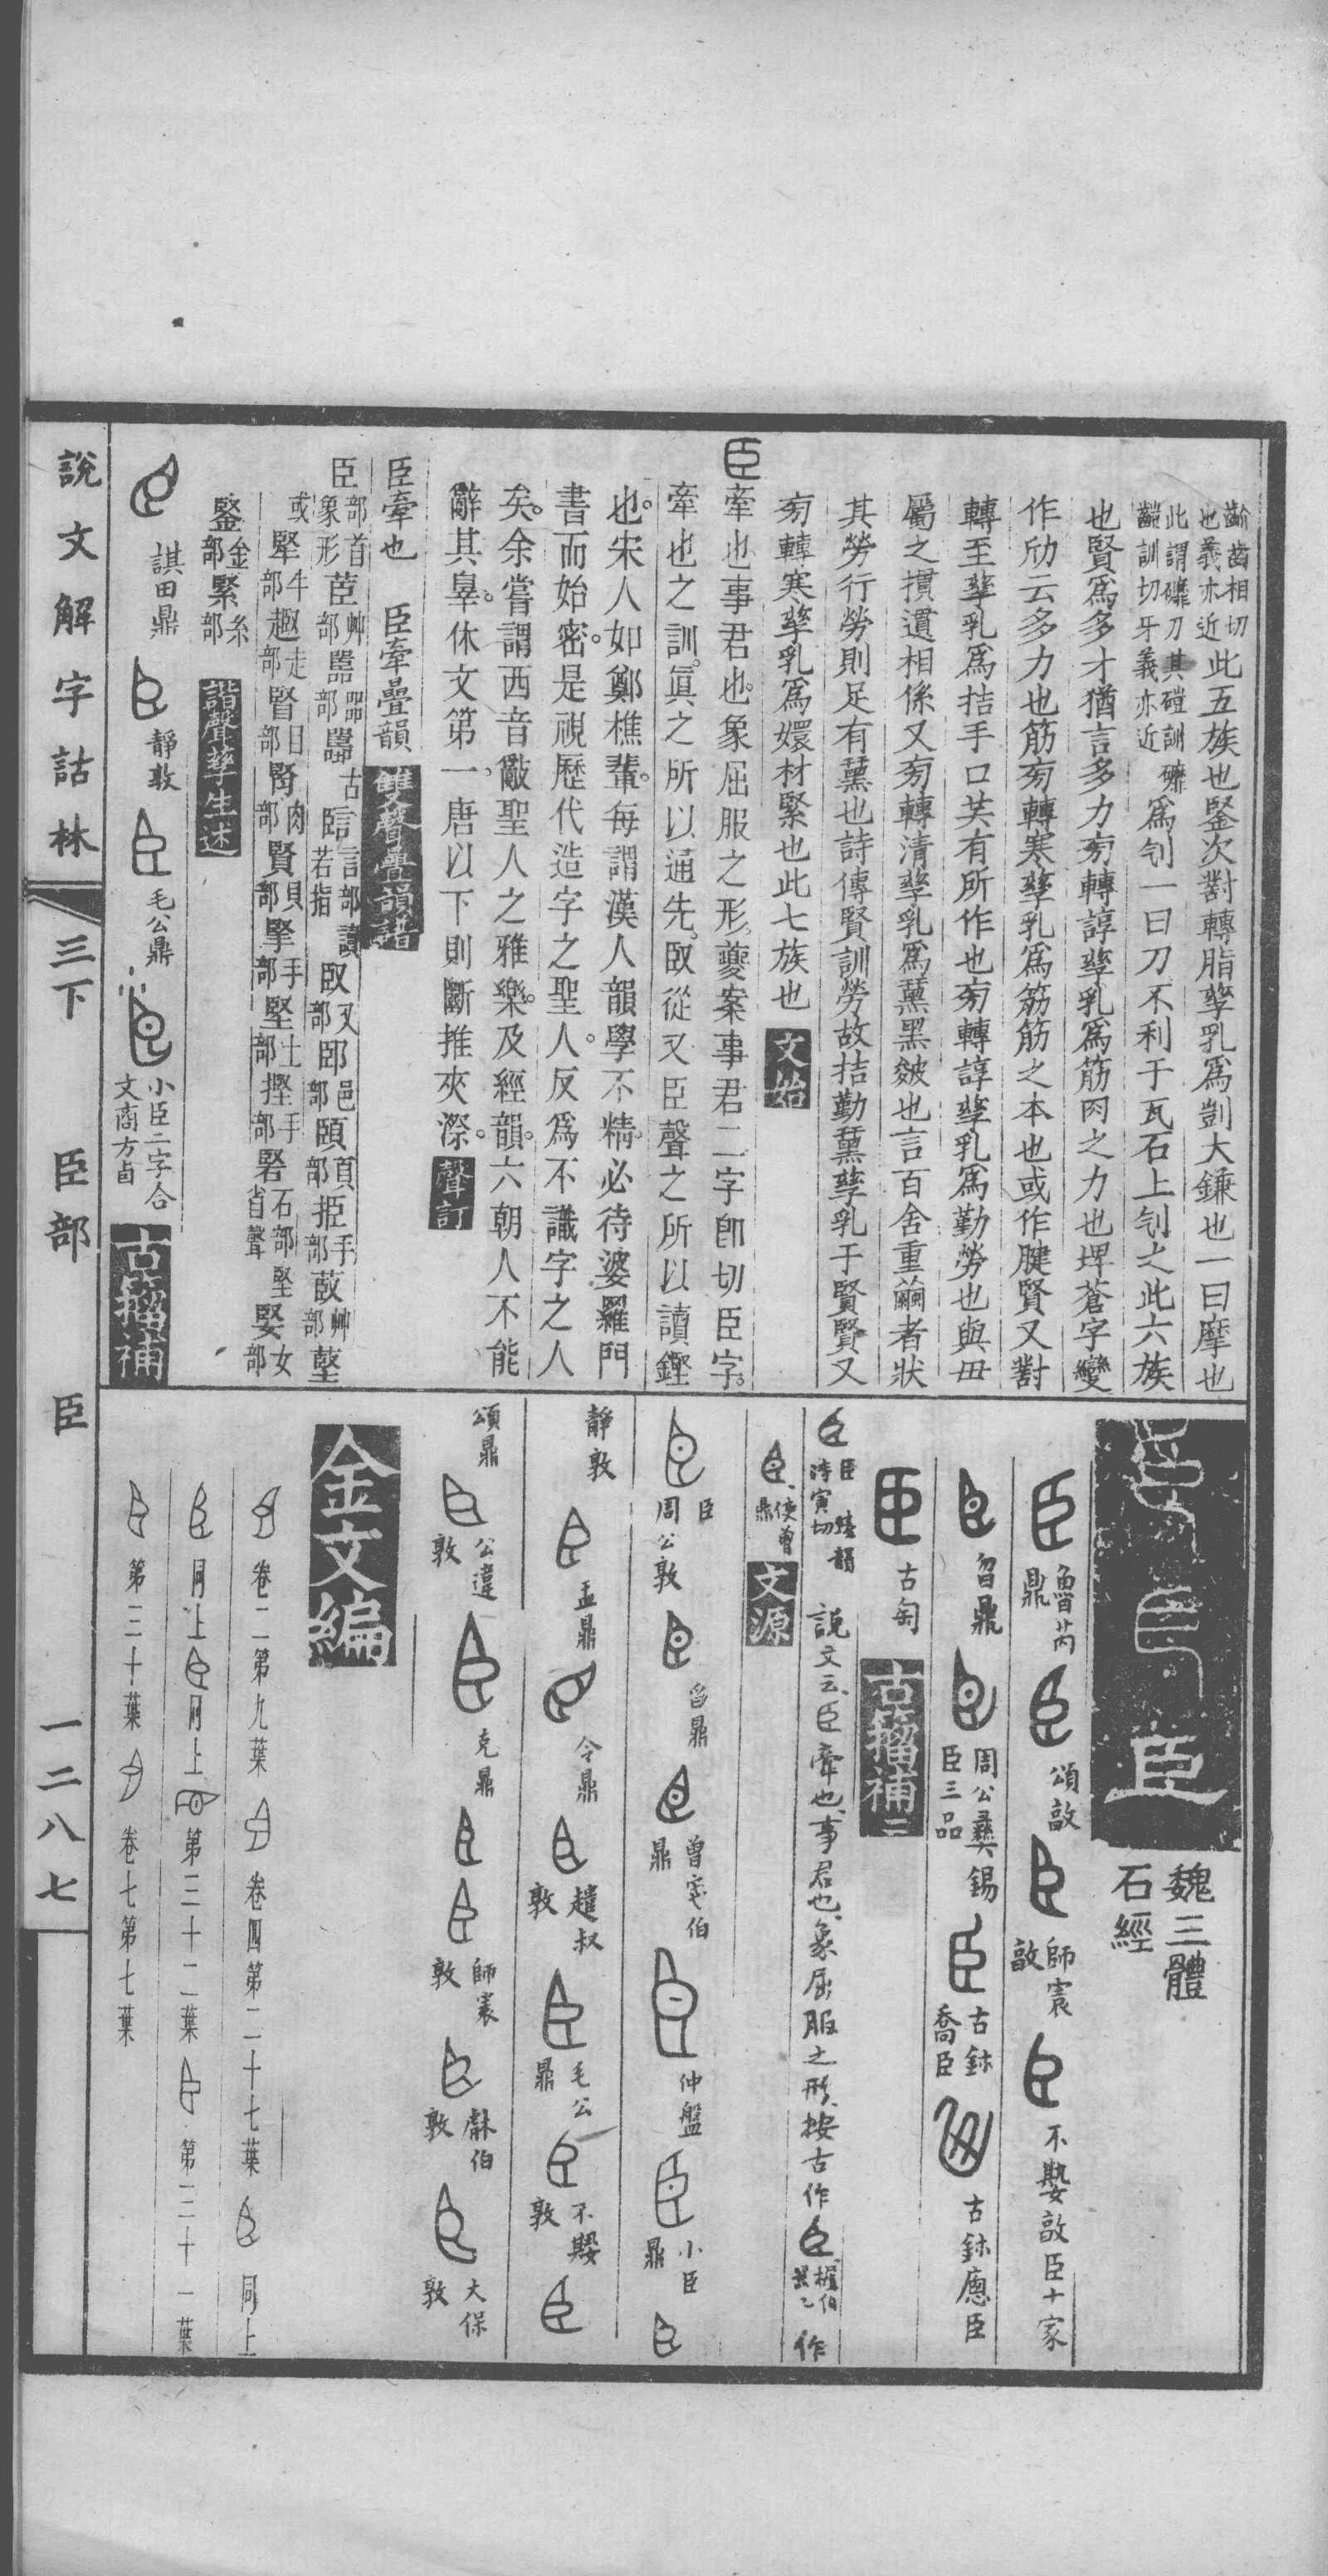 齘齒相切也義亦近此五族也鋻次對轉脂孳乳爲剴大鎌也一曰摩也
此謂礳刀其磑訓礳齛訓切牙義亦近爲刉一曰刀不利于瓦石上刉之此六族
也賢爲多才猶言多力㫄轉諄孳乳爲筋肉之力也埤蒼字變
作劤云多力也筋㫄轉寒孳乳爲笏筋之本也或作腱賢又對
轉至孳乳爲拮手口共有所作也㫄轉諄孳乳爲勤勞也與毌
屬之摜遺相係又㫄轉清孳乳爲黑皴也言百舍重繭者狀
其勞行勞則足有也詩傳賢訓勞故拮勤孳乳于賢賢又
㫄轉寒孳乳爲嬛材緊也此七族也 文始
臣牽也事君也象屈服之形夔案事君二字卽切臣字
牽也之訓眞之所以通先臤從又臣聲之所以讀鏗
也宋人如鄭樵輩每謂漢人韻學不精必待婆羅門
書而始密是視歷代造字之聖人反爲不識字之人
矣余嘗謂西音敵聖人之雅樂及經韻六朝人不能
辭其辠休文第一唐以下則斷推夾漈 聲訂
臣牽也 臣牽疊韻 雙聲疊韻譜
臣部首象形茞艸部嚚㗊部古言部若指讀臤又部邸邑部頤頁部挋手部菣艸部藖
或堅牛部趣走部䁂目部腎肉部賢貝部掔手部堅土部摼手部硻石部堅省聲婜女部
鋻金部緊糸部 諧聲孳生述
諆田鼎 靜敦 毛公鼎 小臣二字合文商方卣 古籀補
魏三體石經
臣
魯芮鼎 頌敦 師寰敦 不嬰敦臣十家
曶鼎 周公彝錫臣三品 古鉥喬臣 古鉥應臣
古匋 古籀補二
臣臻韻 說文云臣牽也事君也象屈服之形按古作 作
使曾鼎 文源
臣周公敦 曶鼎 曾 伯鼎 仲盤 小臣鼎
靜敦 盂鼎 令鼎 趞叔敦 毛公鼎 不敦
頌鼎 公違敦 克鼎 師寰敦 伯敦 大保敦
金文編
卷二第九葉 卷四第二十七葉 同上
同上 同上 第三十二葉 第三十一葉
第三十葉 卷七第七葉
說文解字詁林 三下 臣部 臣 一二八七